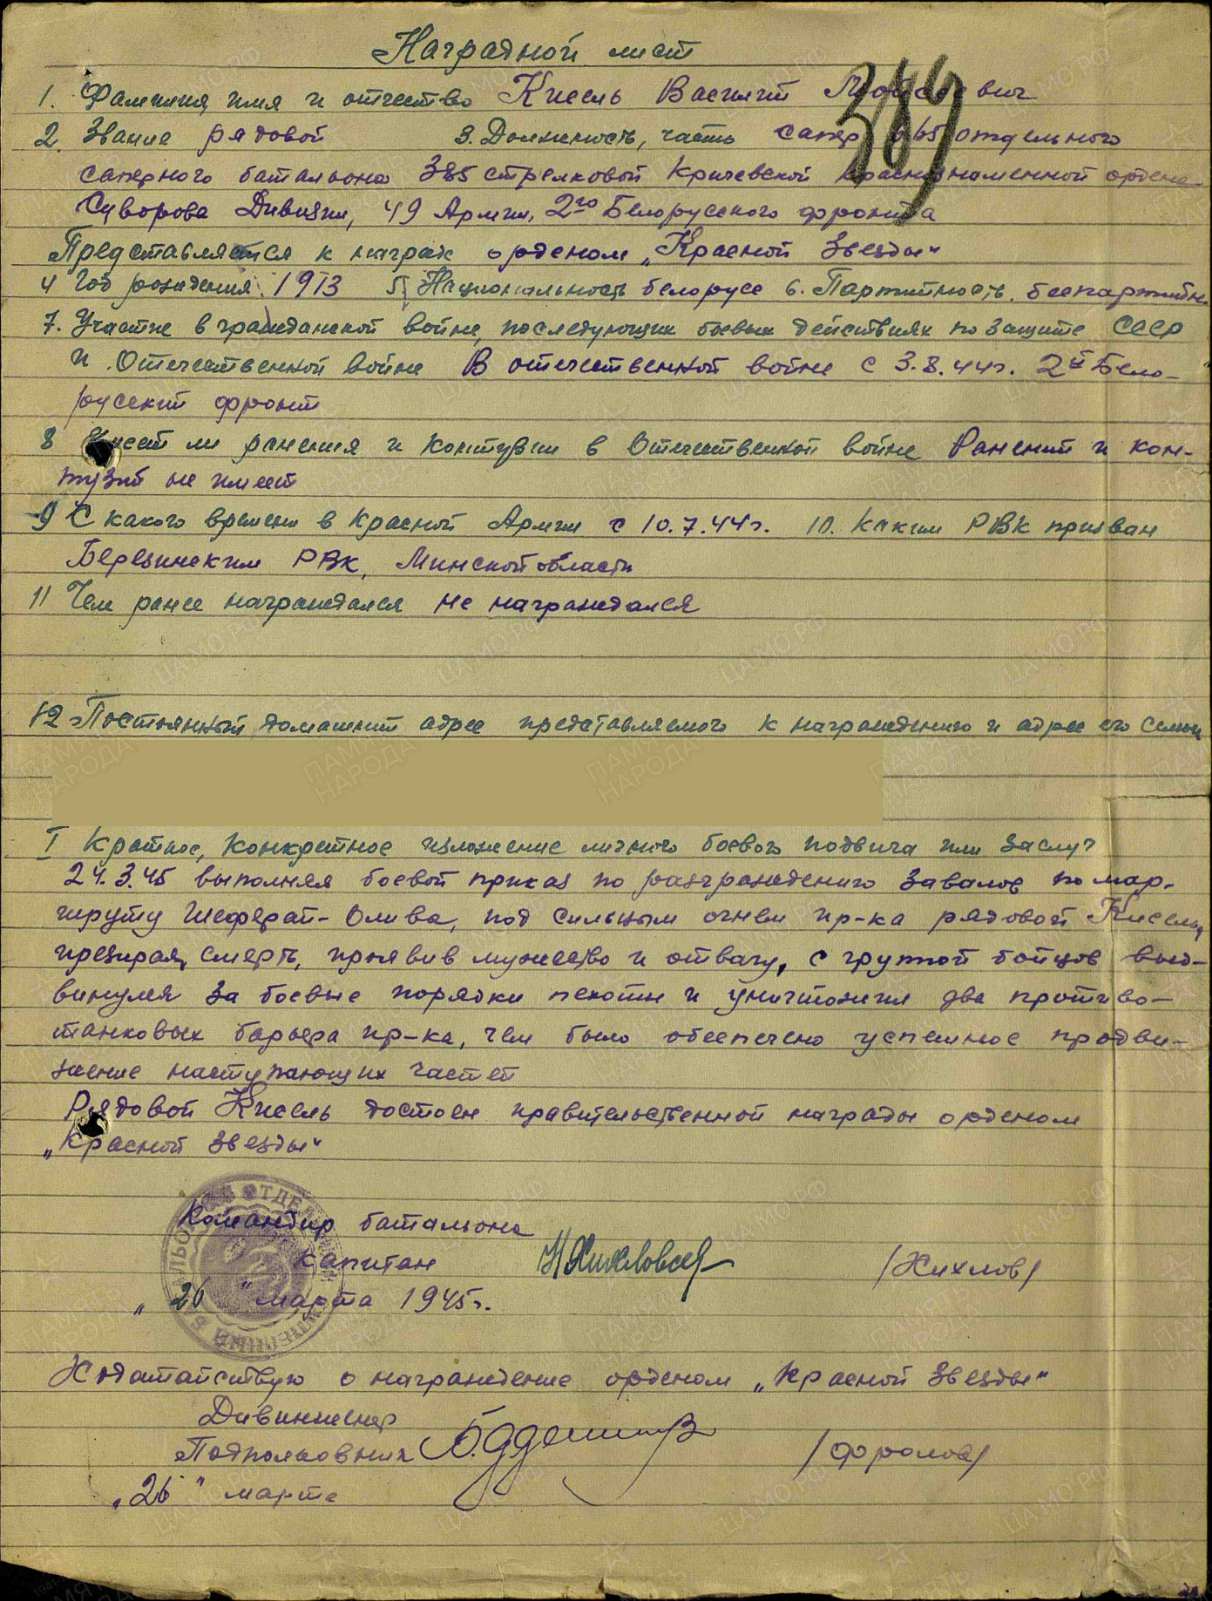 Наградной лист
389
1. Фамилия имя и отчество Кисель Василий Моисеевич
2. Звание рядовой 3. Должность, часть сапер 665 отдельного
саперного батальона 385 стрелковой Кричевской Краснознаменной ордена
Суворова Дивизии, 49 Армии, 2го Белорусского фронта
Представляется к награде орденом „Красной Звезды“
4 Год рождения 1913 5. Национальность белорусс 6. Партийность. беспартийн
7. Участие в гражданской войне, последующих боевых действиях по защите СССР
и Отечественной войне В отечественной войне с 3.8.44г. 2й Бело-
русский фронт
8 Имеет ли ранения и контузии в Отечественной войне Ранений и кон-
тузий не имеет
9 С какого времени в Красной Армии с 10.7.44г. 10. Каким РВК призван
Березинским РВК, Минской области
11 Чем ранее награждался не награждался
12 Постоянный домашний адрес представляемого к награждению и адрес его семьи
I Краткое, конкретное изложение личного боевого подвига или заслуг
24.3.45 выполняя боевой приказ по разграждению завалов по мар-
шруту Шеферай-Олива, под сильным огнем пр-ка рядовой Кисель,
презирая смерть, проявив мужество и отвагу, с группой бойцов выд-
винулся за боевые порядки пехоты и уничтожил два противо-
танковых барьера пр-ка, чем было обеспечено успешное продви-
жение наступающих частей
Рядовой Кисель достоен правительственной награды орденом
„Красной Звезды“
Командир батальона
капитан /Жихлов/
„26“ марта 1945г.
Ходатайствую о награждение орденом „Красной Звезды“
Дивинженер
Подполковник /Фролов/
„26“ марта